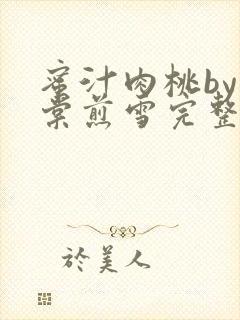 蜜汁肉桃by
棠煎雪完整
於美人